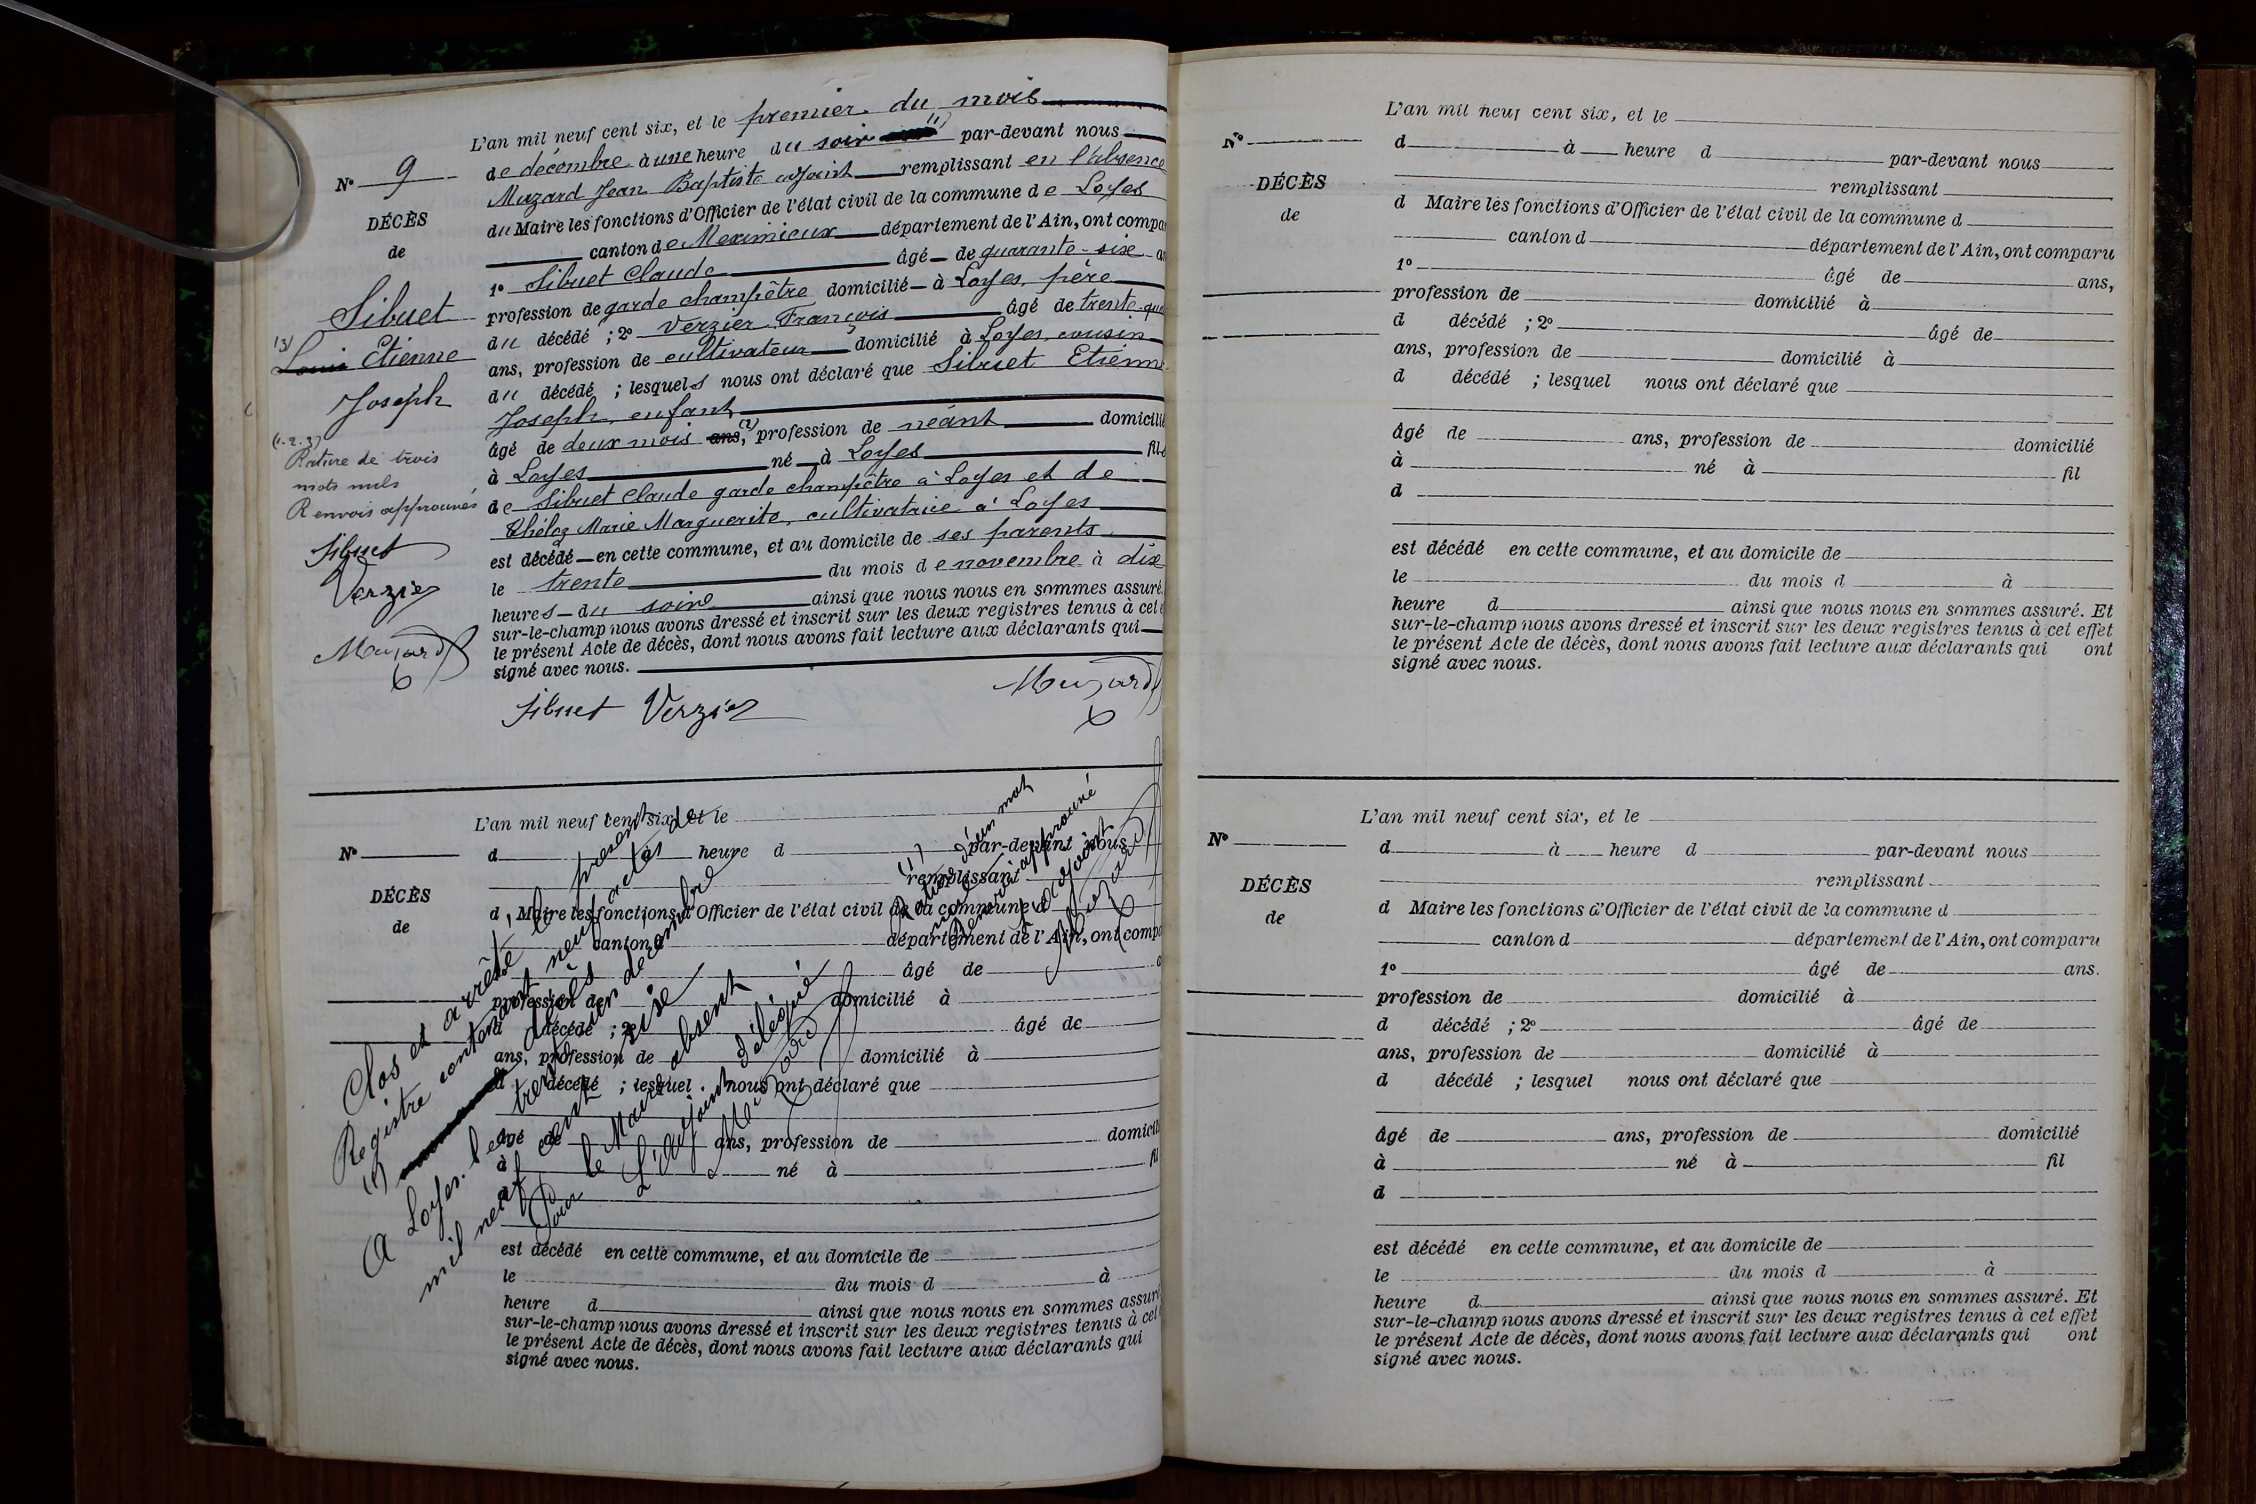 L'an mil neuf cent six, et le premier du mois
de décembre à une heure du soir (1) par-devant nous
Muzard Jean Baptiste adjoint remplissant en l'absence
du Maire les fonctions d'Officier de l'état civil de la commune de Loyes
canton de Meximieux département de l'Ain, ont compa
1º Sibuet Claude âgé de quarante-six an
profession de garde champêtre domicilié à Loyes, père
du décédé ; 2º Verzier François âgé de trente-qua
ans, profession de cultivateur domicilié à Loyes, cousin
du décédé ; lesquels nous ont déclaré que Sibuet Etienne
Joseph, enfant
âgé de deux mois ans, (2) profession de néant domicilié
à Loyes né à Loyes fils
de Sibuet Claude garde champêtre à Loyes et de
Théloz Marie Marguerite, cultivatrice à Loyes
est décédé en cette commune, et au domicile de ses parents
le trente du mois de novembre à dix
heures du soir ainsi que nous nous en sommes assuré
sur-le-champ nous avons dressé et inscrit sur les deux registres tenus à cet e
le présent Acte de décès, dont nous avons fait lecture aux déclarants qui
signé avec nous.
Sibuet Verzier Muzard
Nº 9
DÉCÈS
de
Sibuet
(3)
Louis Etienne
Joseph
(1.2.3)
Rature de trois
mots nuls
Renvois approuvés
Sibuet
Verzier
Muzard
L'an mil neuf cent six, et le
Nº
DÉCÈS
de
d à heure d par-devant nous
remplissant
d Maire les fonctions d'Officier de l'état civil de la commune d
canton d département de l'Ain, ont compa
âgé de a
profession de domicilié à
d décédé ; 2º âgé de
ans, profession de domicilié à
d décédé ; lesquel nous ont déclaré que
âgé de ans, profession de domicili
à né à fil
d
est décédé en cette commune, et au domicile de
le du mois d à
heure d ainsi que nous nous en sommes assuré
sur-le-champ nous avons dressé et inscrit sur les deux registres tenus à cet
le présent Acte de décès, dont nous avons fait lecture aux déclarants qui
signé avec nous.
Clos et arrêté, le présent
Registre contenant neuf actes de
(1) décès
A Loyes, le trente un décembre
mil neuf cent six
Pour le Maire absent
L'adjoint délégué
Muzard
(1) Rature d'un mot
nul Renvoi approuvé
L'adjoint
Muzard
L'an mil neuf cent six, et le
Nº
DÉCÈS
de
d à heure d par-devant nous
remplissant
d Maire les fonctions d'Officier de l'état civil de la commune d
canton d département de l'Ain, ont comparu
1º âgé de ans,
profession de domicilié à
d décédé ; 2º âgé de
ans, profession de domicilié à
d décédé ; lesquel nous ont déclaré que
âgé de ans, profession de domicilié
à né à fil
d
est décédé en cette commune, et au domicile de
le du mois d à
heure d ainsi que nous nous en sommes assuré. Et
sur-le-champ nous avons dressé et inscrit sur les deux registres tenus à cet effet
le présent Acte de décès, dont nous avons fait lecture aux déclarants qui ont
signé avec nous.
L'an mil neuf cent six, et le
Nº
DÉCÈS
de
d à heure d par-devant nous
remplissant
d Maire les fonctions d'Officier de l'état civil de la commune d
canton d département de l'Ain, ont comparu
1º âgé de ans.
profession de domicilié à
d décédé ; 2º âgé de
ans, profession de domicilié à
d décédé ; lesquel nous ont déclaré que
âgé de ans, profession de domicilié
à né à fil
d
est décédé en cette commune, et au domicile de
le du mois d à
heure d ainsi que nous nous en sommes assuré. Et
sur-le-champ nous avons dressé et inscrit sur les deux registres tenus à cet effet
le présent Acte de décès, dont nous avons fait lecture aux déclarants qui ont
signé avec nous.